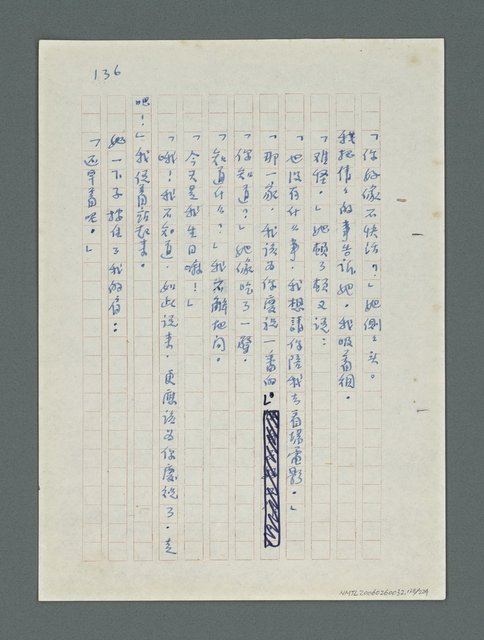 136
「你好像不快活？」她側々头。
我把倩々的事告訴她。我吸着烟。
「难怪。」她頓了頓又説：
「也没有什么事。我想請你陪我去看場電影。」
「那一家。我該为你慶祝一番的」。
「你知道？」她像吃了一驚。
「知道什么？」我不解地问。
「今天是我生日嗽！」
「哦！我不知道。如此説来，更應該为你慶祝了。走
吧！」我促着站起来。
她一下子按住了我的肩：
「还早着吧。」
NMTL20060260032